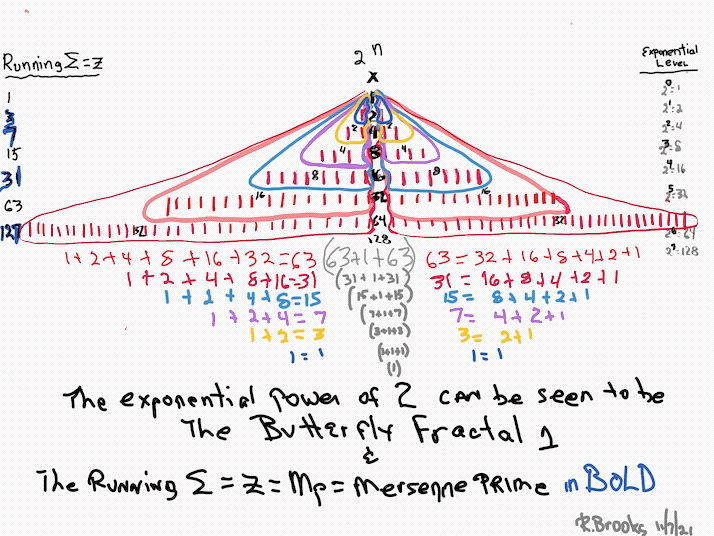 2 n
x
Running Σ=z
1
3
7
15
31
63
127
Exponential
Level
2⁰=1
2¹=2
2²=4
2³=8
2⁴=16
2⁵=32
2⁶=64
2⁷=128
1
2
2 4 2
4 8 4
8 16 8
16 32 16
32 64 32
128
1+2+4+8+16+32=63 (63+1+63) 63=32+16+8+4+2+1
1+2+4+8+16=31 (31+1+31) 31=16+8+4+2+1
1+2+4+8=15 (15+1+15) 15=8+4+2+1
1+2+4=7 (7+1+7) 7=4+2+1
1+2=3 (3+1+3) 3=2+1
1=1 (1+1+1) 1=1
(1)
The exponential power of 2 can be seen to be
The Butterfly Fractal 1
&
The Running Σ=z=Mp=Mersenne PRIME in BOLD
R.Brooks 11/7/21